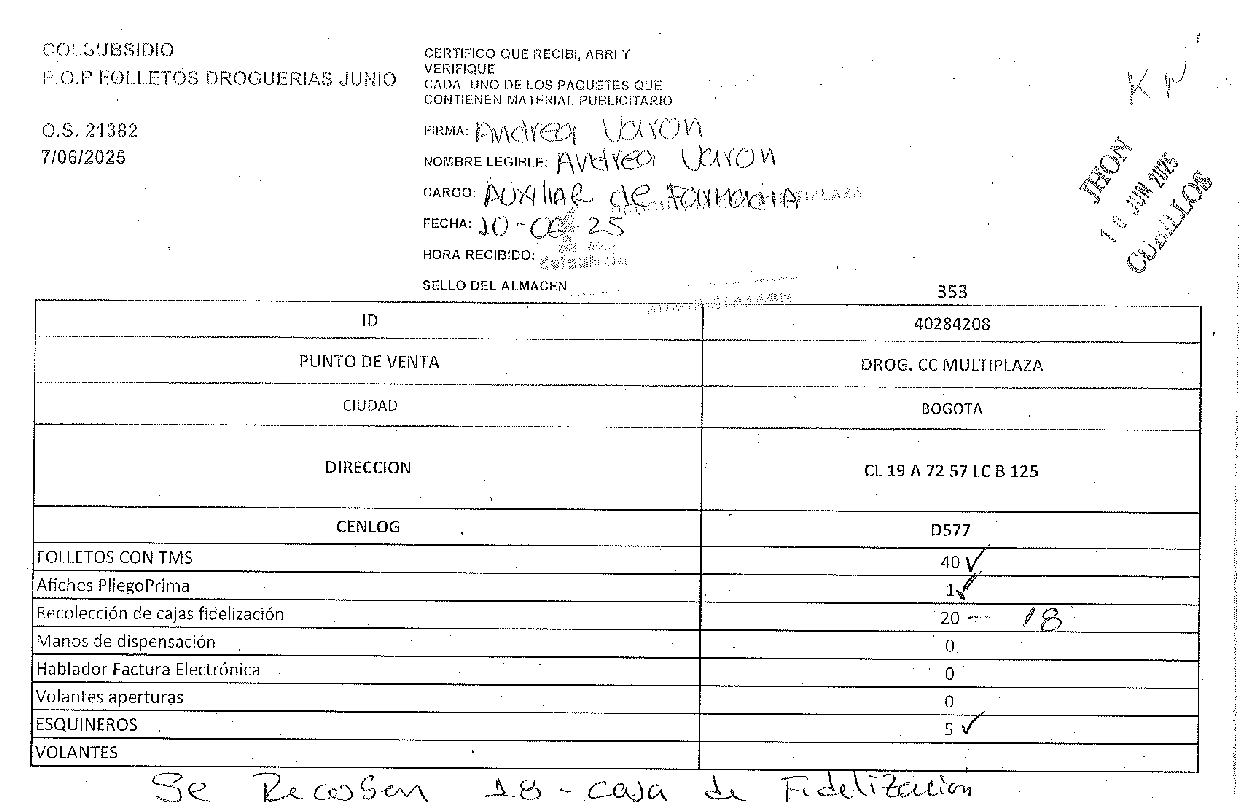 COLSUBSIDIO
P.O.P FOLLETOS DROGUERIAS JUNIO
O.S. 21382
7/06/2025
CERTIFICO QUE RECIBI, ABRI Y
VERIFIQUE
CADA UNO DE LOS PAQUETES QUE
CONTIENEN MATERIAL PUBLICITARIO
FIRMA: Andrea Varon
NOMBRE LEGIBLE: Andrea Varon
CARGO: Auxiliar de Farmacia
FECHA: 10-06-25
HORA RECIBIDO:
SELLO DEL ALMACEN
JHON
10 JUN 2025
CUBILLOS
353
ID 40284208
PUNTO DE VENTA DROG. CC MULTIPLAZA
CIUDAD BOGOTA
DIRECCION CL 19 A 72 57 LC B 125
CENLOG D577
FOLLETOS CON TMS 40 ✓
Afiches PliegoPrima 1 ✓
Recolección de cajas fidelización 20 — 18
Manos de dispensación 0
Hablador Factura Electrónica 0
Volantes aperturas 0
ESQUINEROS 5 ✓
VOLANTES
Se Recogen 18 - caja de Fidelizacion